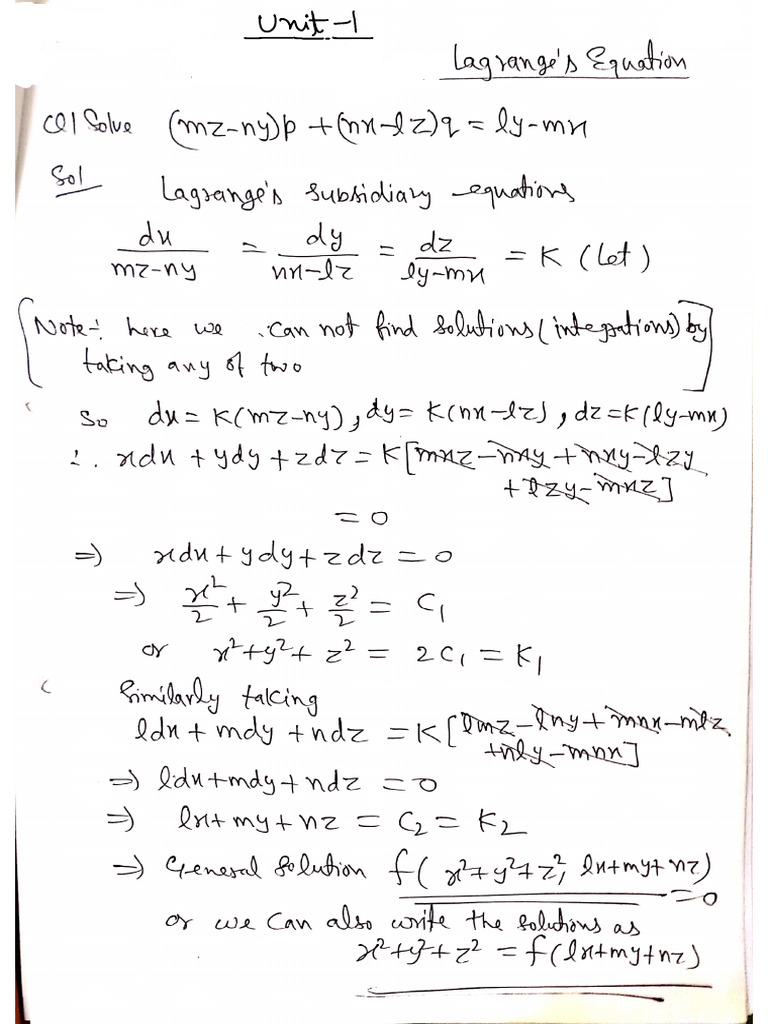 Unit-1
Lagrange's Equation
Q1 Solve (mz-ny)p + (nx-lz)q = ly-mx
Sol Lagrange's subsidiary equations
dx/(mz-ny) = dy/(nx-lz) = dz/(ly-mx) = K (let)
[Note:- here we can not find solutions (integrations) by
taking any of two]
So dx = K(mz-ny), dy = K(nx-lz), dz = K(ly-mx)
∴ xdx + ydy + zdz = K[mxz - nxy + nxy - lzy
+ lzy - mxz]
= 0
⇒ xdx + ydy + zdz = 0
⇒ x²/2 + y²/2 + z²/2 = C₁
or x² + y² + z² = 2C₁ = K₁
Similarly taking
ldx + mdy + ndz = K[lmz - lny + mnx - mlz
+ nly - mnx]
⇒ ldx + mdy + ndz = 0
⇒ lx + my + nz = C₂ = K₂
⇒ General solution f(x²+y²+z², lx+my+nz)
= 0
or we can also write the solutions as
x²+y²+z² = f(lx+my+nz)